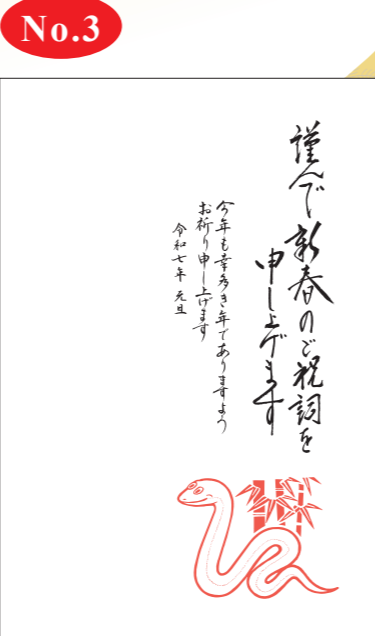 No.3
謹んで新春のご祝詞を
申し上げます
今年も幸多き年でありますよう
お祈り申し上げます
令和七年 元旦